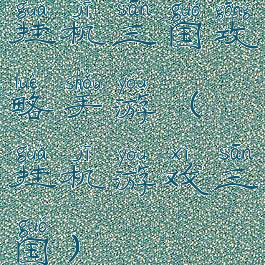 guà jī sān guó gōng
挂机三国攻
lüè shǒu yóu
略手游（
guà jī yóu xì sān
挂机游戏三
guó
国）